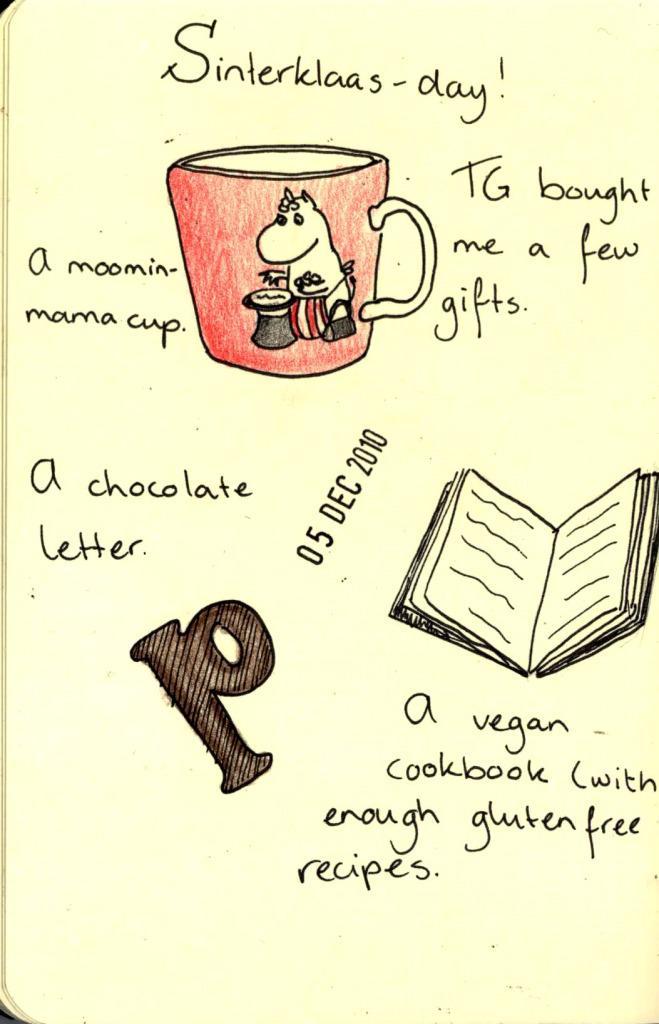 Sinterklaas-day!
TG bought
me a few
gifts.
a moomin-
mama cup.
A chocolate
letter.
05 DEC 2010
p
A vegan
cookbook (with
enough gluten free
recipes.